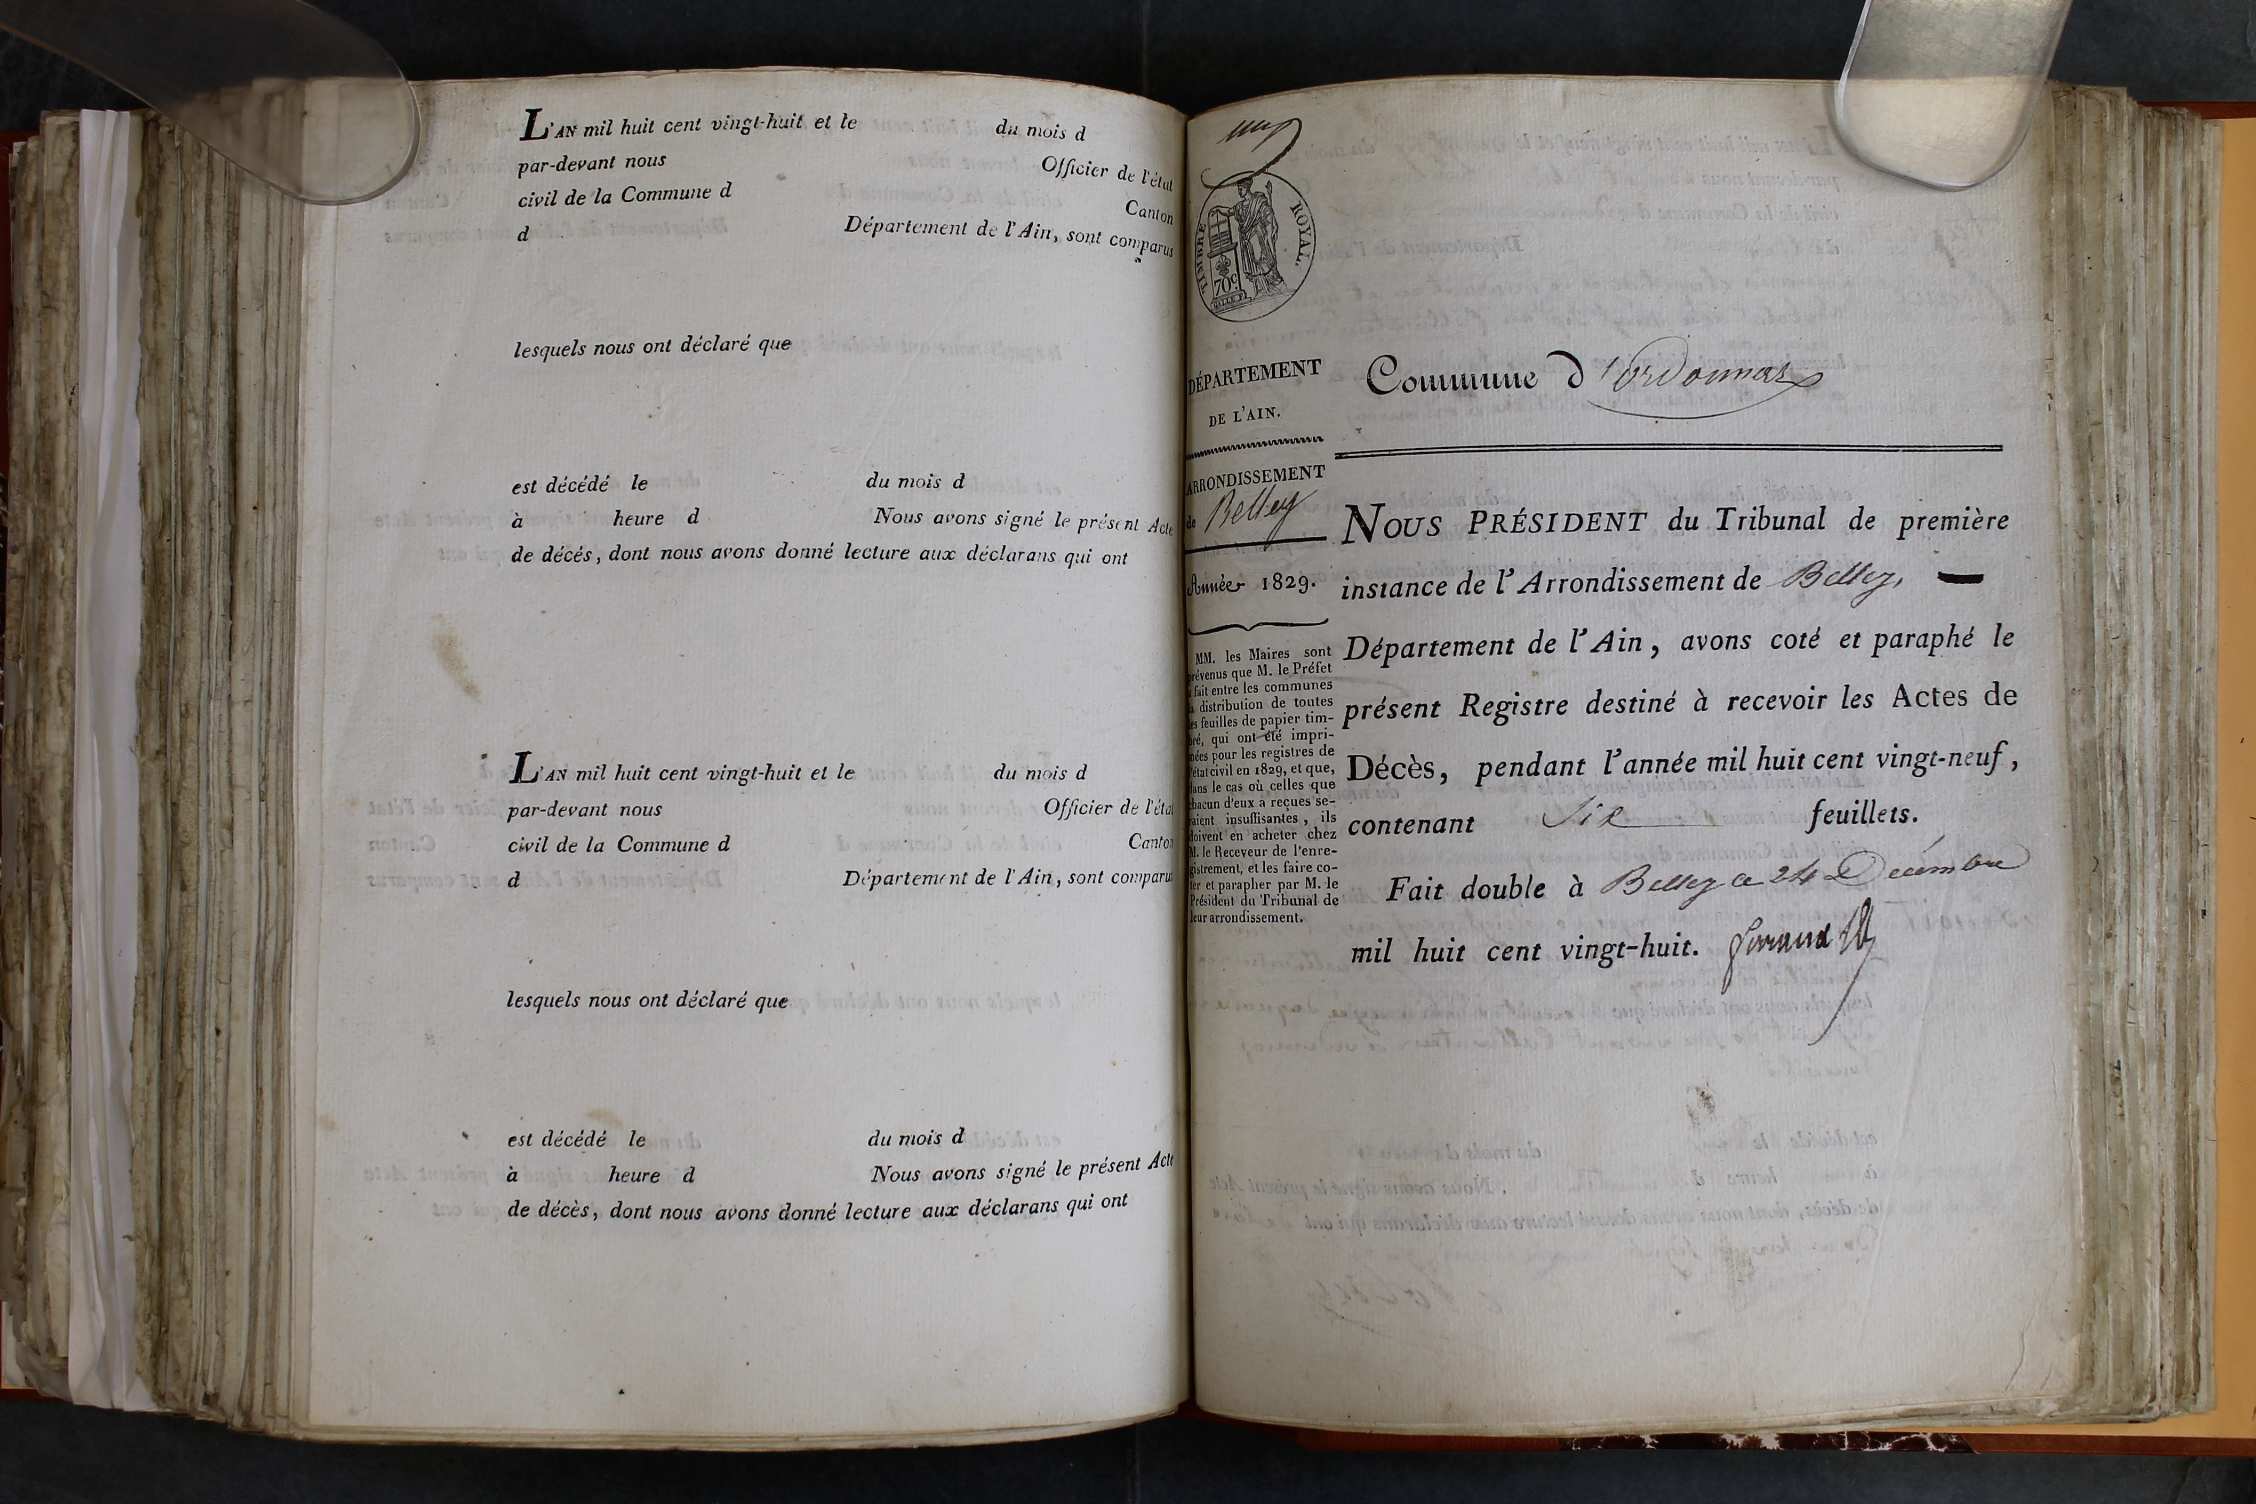 L'AN mil huit cent vingt-huit et le du mois d
par-devant nous Officier de l'état
civil de la Commune d Canton
d Département de l'Ain, sont comparus
lesquels nous ont déclaré que
est décédé le du mois d
à heure d Nous avons signé le présent Acte
de décés, dont nous avons donné lecture aux déclarans qui ont
L'AN mil huit cent vingt-huit et le du mois d
par-devant nous Officier de l'état
civil de la Commune d Canton
d Département de l'Ain, sont comparus
lesquels nous ont déclaré que
est décédé le du mois d
à heure d Nous avons signé le présent Acte
de décès, dont nous avons donné lecture aux déclarans qui ont
TIMBRE ROYAL.
70c.
DÉPARTEMENT
DE L'AIN.
ARRONDISSEMENT
de Belley
Année 1829.
MM. les Maires sont
prévenus que M. le Préfet
a fait entre les communes
la distribution de toutes
les feuilles de papier tim-
bré, qui ont été impri-
mées pour les registres de
l'état civil en 1829, et que,
dans le cas où celles que
chacun d'eux a reçues se-
raient insuffisantes, ils
doivent en acheter chez
M. le Receveur de l'enre-
gistrement, et les faire co-
ter et parapher par M. le
Président du Tribunal de
leur arrondissement.
Commune d'ordonnas
NOUS PRÉSIDENT du Tribunal de première
instance de l'Arrondissement de Belley,
Département de l'Ain, avons coté et paraphé le
présent Registre destiné à recevoir les Actes de
Décès, pendant l'année mil huit cent vingt-neuf,
contenant Six feuillets.
Fait double à Belley ce 24 Décembre
mil huit cent vingt-huit.